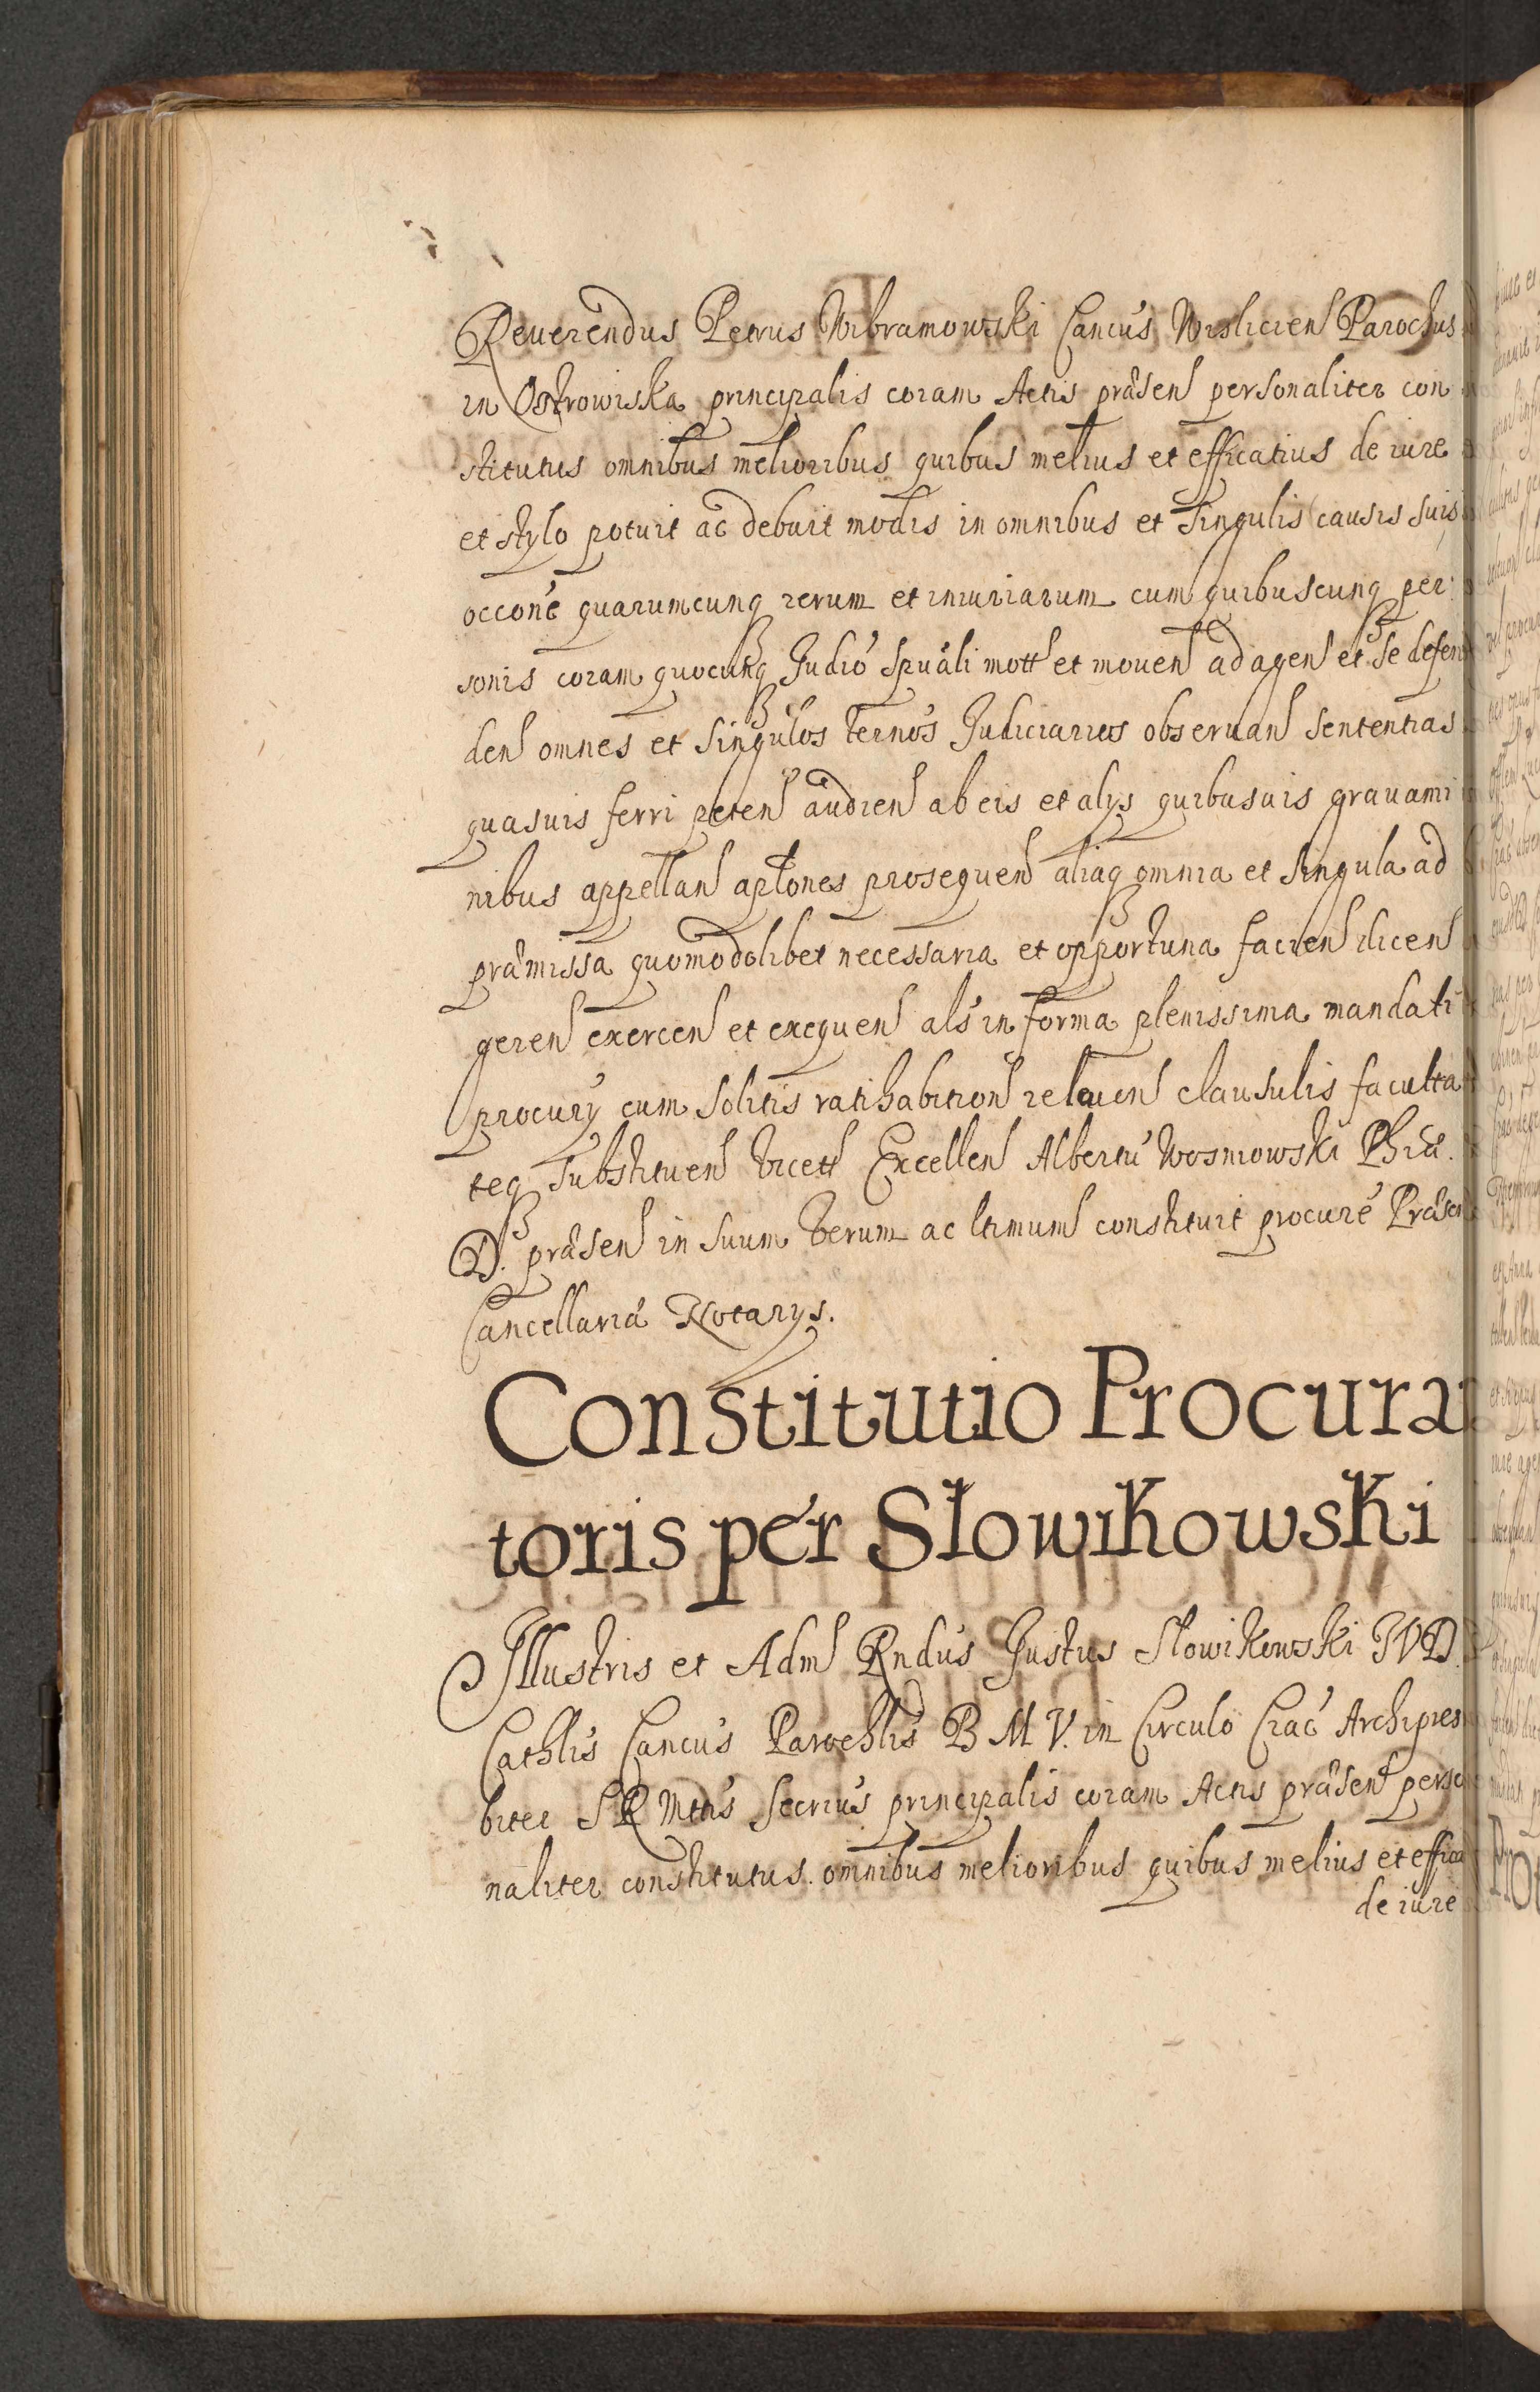 Reuerendus Petrus Wibramowski Cancus Wislicien Parochus
in Ostrowiska principalis coram Actis præsen personaliter con
stitutus omnibus melioribus quibus melius et efficatius de iure
et stylo potuit ac debuit modis in omnibus et singulis causis suis
occone quarumcunq rerum et iniuriarum cum quibuscunq per
sonis coram quocunq Judio spuali mott et mouen ad agen et se defen
den omnes et singulos ternos Judiciarios obseruan sententias
quasuis ferri peten audien ab eis et alys quibusuis grauami
nibus appellan aplones prosequen aliaq omnia et singula ad
præmissa quomodolibet necessaria et opportuna facien dicen
geren exercen et exequen als in forma plenissima mandati
procury cum solitis ratihabition releuen clausulis faculta
teq substituen vicett Excellen Albertu Wosniowski Phiæ.
D. præsen in suum verum ac ltimum constituit procure Præsen
Cancellariæ Notarys.
Constitutio Procura
toris per Słowikowski
Illustris et Adm Rndus Justus Słowikowski JVD.
Cathlis Cancus Parochlis B M V. in Circulo Crac Archipres
biter S R Mttis Secrius principalis coram Actis præsen perso
naliter constitutus. omnibus melioribus quibus melius et effica
de iure